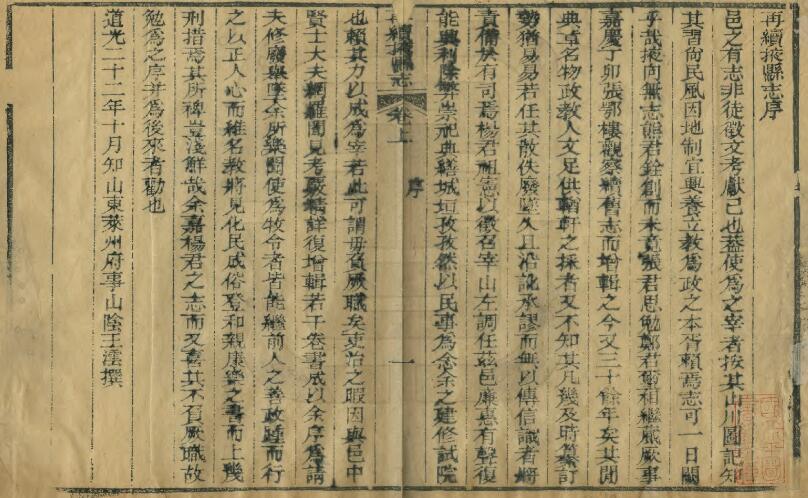 再續掖縣志序
邑之有志非徒徵文考獻已也葢使爲之宰者按其山川圖記知
其習尚民風因地制宜興養立教爲政之本胥賴焉志可一日闕
乎哉掖向無志龍君銓創而未竟張君思勉鄭君爾相繼厥事
嘉慶丁卯張鄂樓觀察續舊志而增輯之今又三十餘年矣其間
典章名物政教人文足供輶軒之採者又不知其凡幾及時纂訂
勢猶易易若任其散佚廢墜久且沿訛承謬而無以傳信識者將
責備於有司焉楊君祖憲以徵召宰山左調任茲邑廉惠有聲復
能興利除弊崇祀典繕城垣孜孜然以民事爲念余之建修試院
再續掖縣志
卷上
序
一
也賴其力以成爲宰若此可謂毋負厥職矣吏治之暇因與邑中
賢士大夫網羅聞見考覈精詳復增輯若干卷書成以余序爲請
夫修廢舉墜余所樂聞使爲牧令者皆能繼前人之善政踵而行
之以正人心而維名教將見化民成俗登和親康樂之書而上幾
刑措焉其所裨豈淺鮮哉余嘉楊君之志而又喜其不負厥職故
勉爲之序并爲後來者勸也
道光二十二年十月知山東萊州府事山陰王澐撰